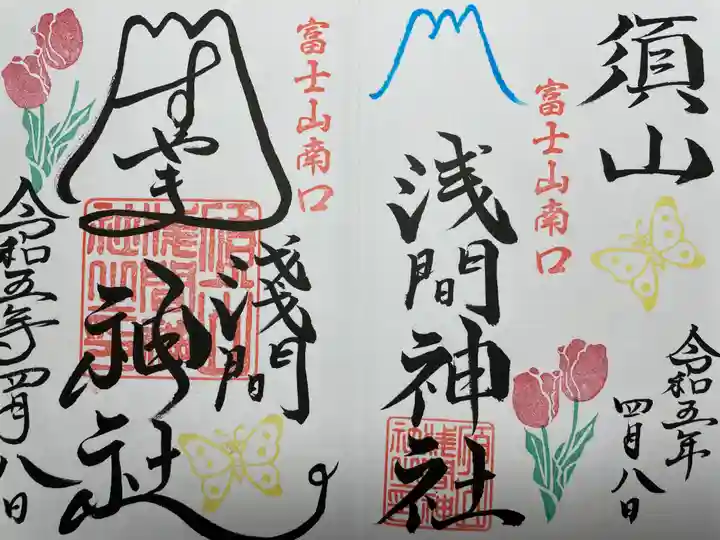 須山
富士山南口
浅間神社
令和五年
四月八日
富士山南口
すやま
淺間
神社
令和五年四月八日